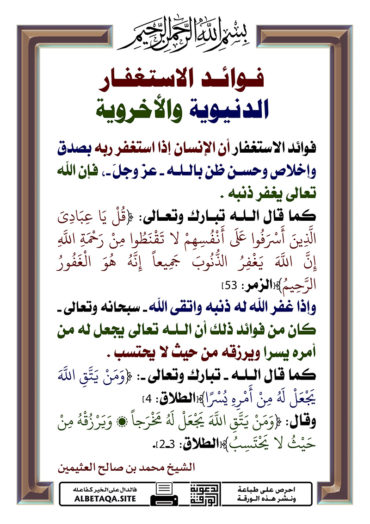 بسم الله الرحمن الرحيم
فوائد الاستغفار
الدنيوية والأخروية
فوائد الاستغفار أن الإنسان إذا استغفر ربه بصدق
وإخلاص وحسن ظن بالله ـ عزّ وجلّ ـ، فإن الله
تعالى يغفر ذنبه .
كما قال الله تبارك وتعالى: ﴿قُلْ يَا عِبَادِيَ
الَّذِينَ أَسْرَفُوا عَلَى أَنْفُسِهِمْ لا تَقْنَطُوا مِنْ رَحْمَةِ اللَّهِ
إِنَّ اللَّهَ يَغْفِرُ الذُّنُوبَ جَمِيعاً إِنَّهُ هُوَ الْغَفُورُ
الرَّحِيمُ﴾[الزمر: 53]
وإذا غفر الله له ذنبه واتقى الله ـ سبحانه وتعالى ـ
كان من فوائد ذلك أن الله تعالى يجعل له من
أمره يسرا ويرزقه من حيث لا يحتسب .
كما قال الله ـ تبارك وتعالى ـ: ﴿وَمَنْ يَتَّقِ اللَّهَ
يَجْعَلْ لَهُ مِنْ أَمْرِهِ يُسْرًا﴾[الطلاق: 4]
وقال: ﴿وَمَنْ يَتَّقِ اللَّهَ يَجْعَلْ لَهُ مَخْرَجاً ۞ وَيَرْزُقْهُ مِنْ
حَيْثُ لا يَحْتَسِبُ﴾[الطلاق: 2ـ3].
الشيخ محمد بن صالح العثيمين
احرص على طباعة
ونشر هذه الورقة
الورقة الدعوية
فالدال على الخير كفاعله
ALBETAQA.SITE